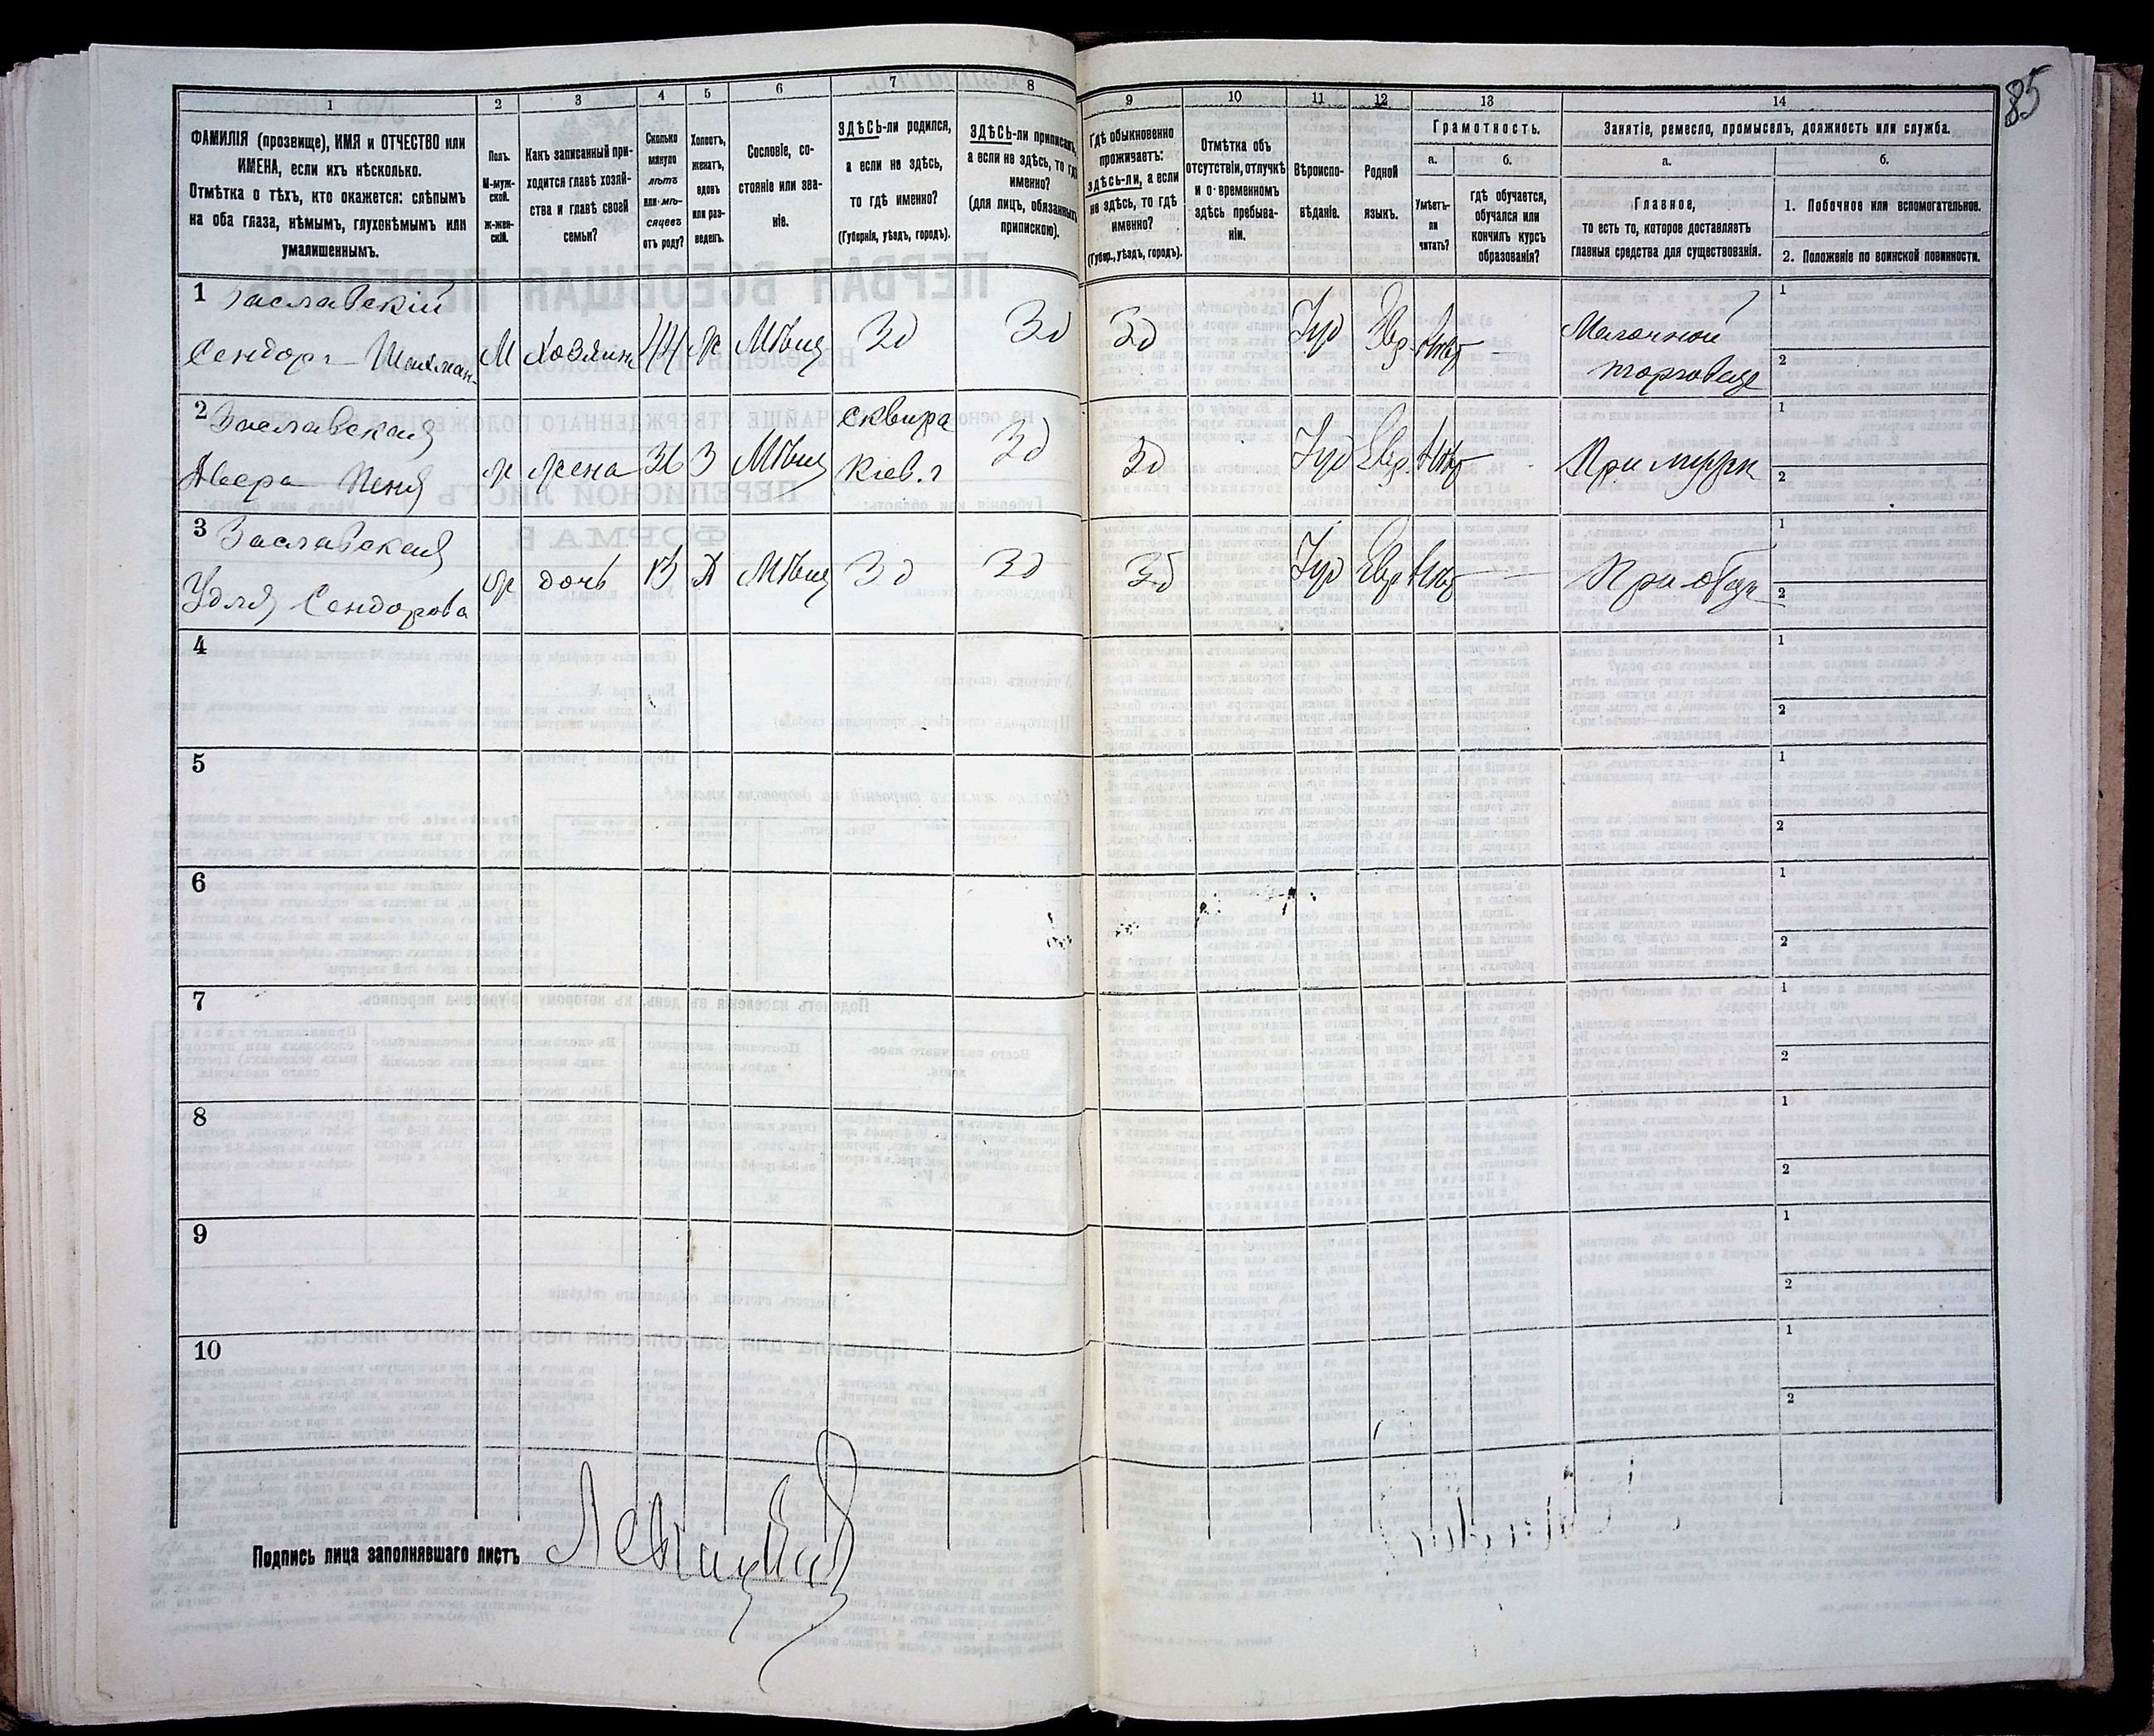 85
1
2
3
4
5
6
7
8
9
10
11
12
13
14
ФАМИЛІЯ (прозвище), ИМЯ и ОТЧЕСТВО или
ИМЕНА, если ихъ нѣсколько.
Отмѣтка о тѣхъ, кто окажется: слѣпымъ
на оба глаза, нѣмымъ, глухонѣмымъ или
умалишеннымъ.
Полъ.
М-муж-
ской.
Ж-жен-
скій.
Какъ записанный при-
ходится главѣ хозяй-
ства и главѣ своей
семьи?
Сколько
минуло
лѣтъ
или мѣ-
сяцевъ
отъ роду?
Холостъ,
женатъ,
вдовъ
или раз-
веденъ.
Сословіе, со-
стояніе или зва-
ніе.
ЗДѢСЬ-ли родился,
а если не здѣсь,
то гдѣ именно?
(Губернія, уѣздъ, городъ).
ЗДѢСЬ-ли приписанъ,
а если не здѣсь, то гдѣ
именно?
(для лицъ, обязанныхъ
припискою).
Гдѣ обыкновенно
проживаетъ:
здѣсь-ли, а если
не здѣсь, то гдѣ
именно?
(Губер., уѣздъ, городъ).
Отмѣтка объ
отсутствіи, отлучкѣ
и о временномъ
здѣсь пребыва-
ніи.
Вѣроиспо-
вѣданіе.
Родной
языкъ.
Грамотность.
а.
б.
Умѣетъ-
ли
читать?
гдѣ обучается,
обучался или
кончилъ курсъ
образованія?
Занятіе, ремесло, промыселъ, должность или служба.
а.
б.
Главное,
то есть то, которое доставляетъ
главныя средства для существованія.
1. Побочное или вспомогательное.
2. Положеніе по воинской повинности.
1 Заславскій
Сендоръ М Хозяинъ 44 Ж Мѣщ Зд Зд Зд Іуд Евр Нѣт - Мелочной
торговецъ
1
2
2 Заславская Сквира
Пеня ж жена 36 З Мѣщ Кіев. г Зд Зд Іуд Евр. Нѣт При мужѣ
1
2
3 Заславская
Удля Сендорова ж дочь 13 Д Мѣщ Зд Зд Зд Іуд Евр Нѣт — При отцѣ
1
2
4
1
2
5
1
2
6
1
2
7
1
2
8
1
2
9
1
2
10
1
2
Подпись лица заполнявшаго листъ Левицкій